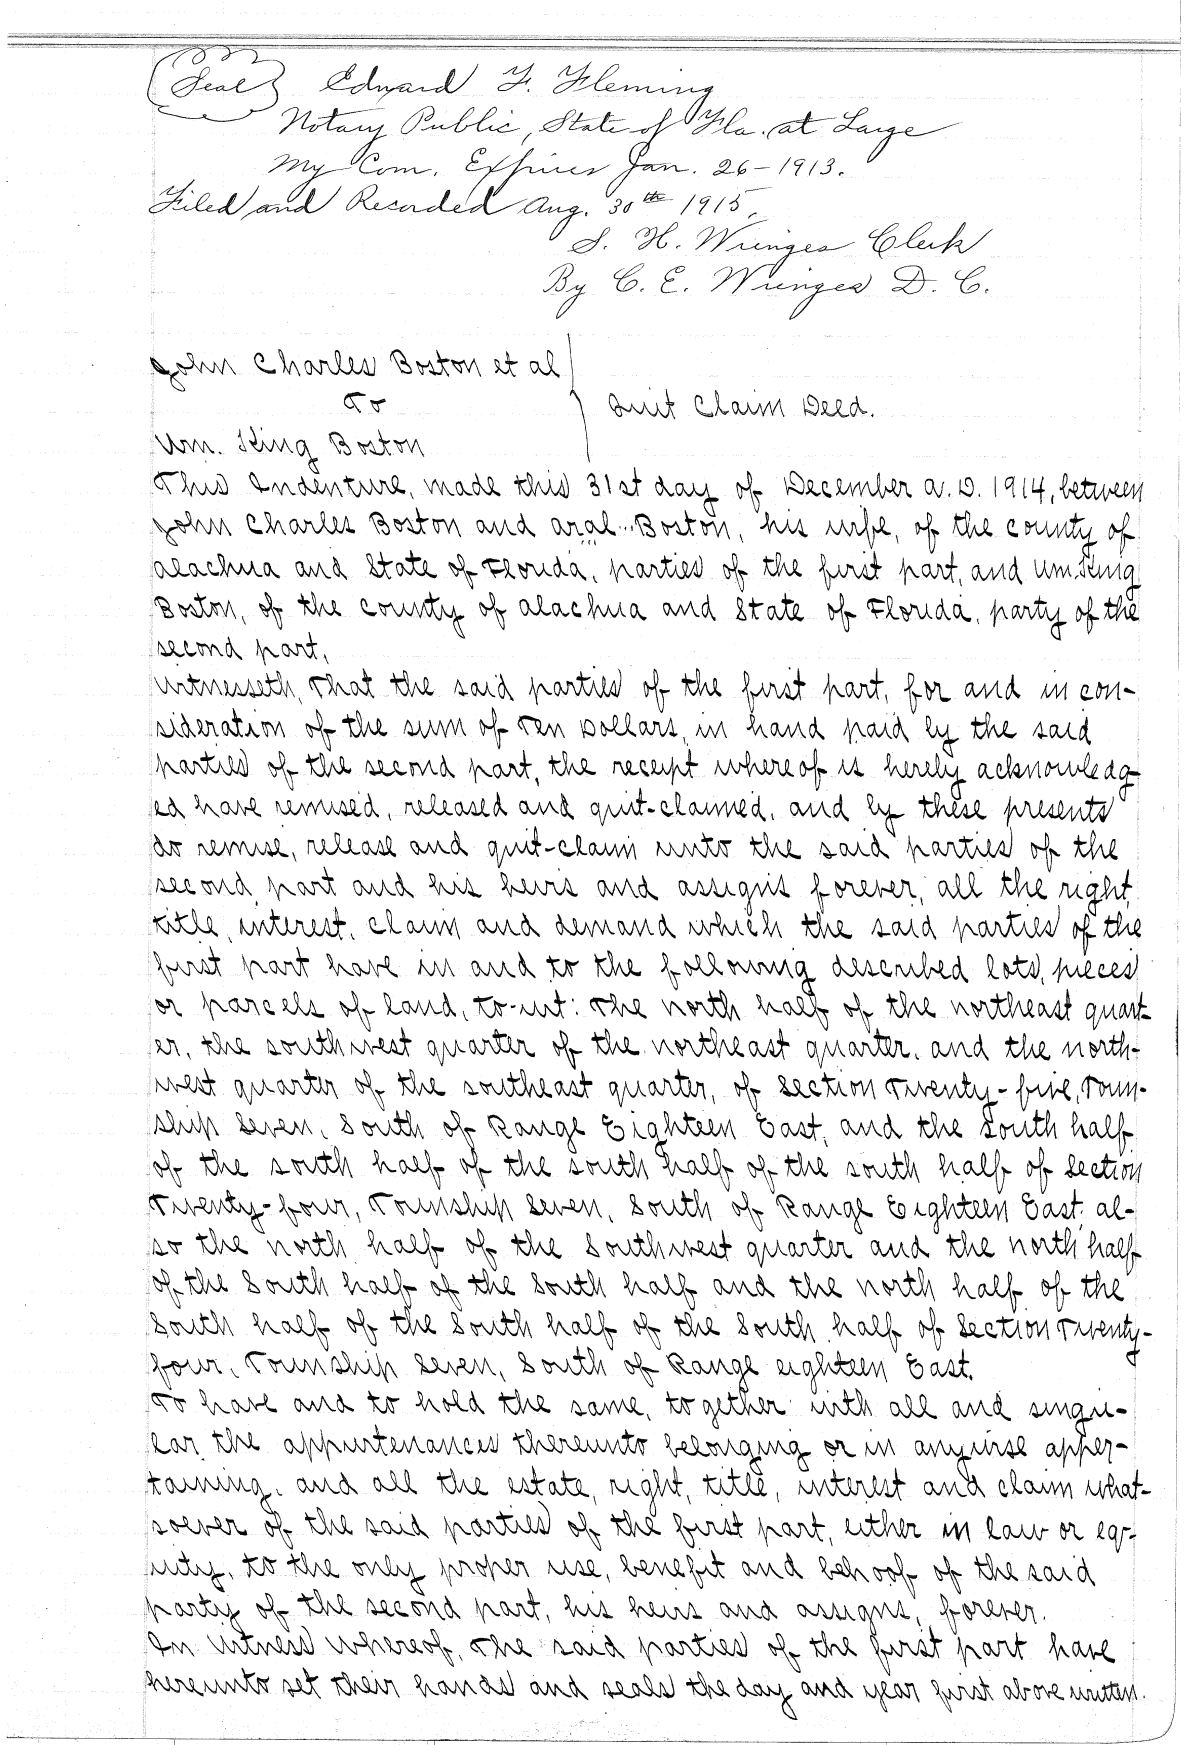 Seal Edward F. Fleming
Notary Public, State of Fla. at Large
My Com. Expires Jan. 26-1913.
Filed and Recorded Aug. 30th 1915.
S. H. Wienges Clerk
By C. E. Wienges D. C.
John Charles Boston et al
To
Quit Claim Deed.
Wm. King Boston
This Indenture, made this 31st day of December A.D. 1914, between
John Charles Boston and Aral Boston, his wife, of the county of
Alachua and State of Florida, parties of the first part, and Wm. King
Boston, of the county of Alachua and State of Florida, party of the
second part,
Witnesseth, That the said parties of the first part, for and in con-
sideration of the sum of Ten Dollars, in hand paid by the said
parties of the second part, the receipt whereof is hereby acknowledg-
ed have remised, released and quit-claimed, and by these presents
do remise, release and quit-claim unto the said parties of the
second part and his heirs and assigns forever, all the right,
title, interest, claim and demand which the said parties of the
first part have in and to the following described lots, pieces
or parcels of land, to-wit: The north half of the northeast quart-
er, the southwest quarter of the northeast quarter, and the north-
west quarter of the southeast quarter, of Section Twenty-five, Town-
ship Seven, South of Range Eighteen East, and the South half
of the south half of the south half of the south half of Section
Twenty-four, Township Seven, South of Range Eighteen East, al-
so the north half of the Southwest quarter and the north half
of the South half of the South half and the north half of the
South half of the South half of the South half of Section Twenty-
four, Township Seven, South of Range eighteen East.
To have and to hold the same, together with all and singu-
lar the appurtenances thereunto belonging or in anywise apper-
taining, and all the estate, right, title, interest and claim what-
soever of the said parties of the first part, either in law or eq-
uity, to the only proper use, benefit and behoof of the said
party of the second part, his heirs and assigns, forever.
In Witness Whereof, The said parties of the first part have
hereunto set their hands and seals the day and year first above written.